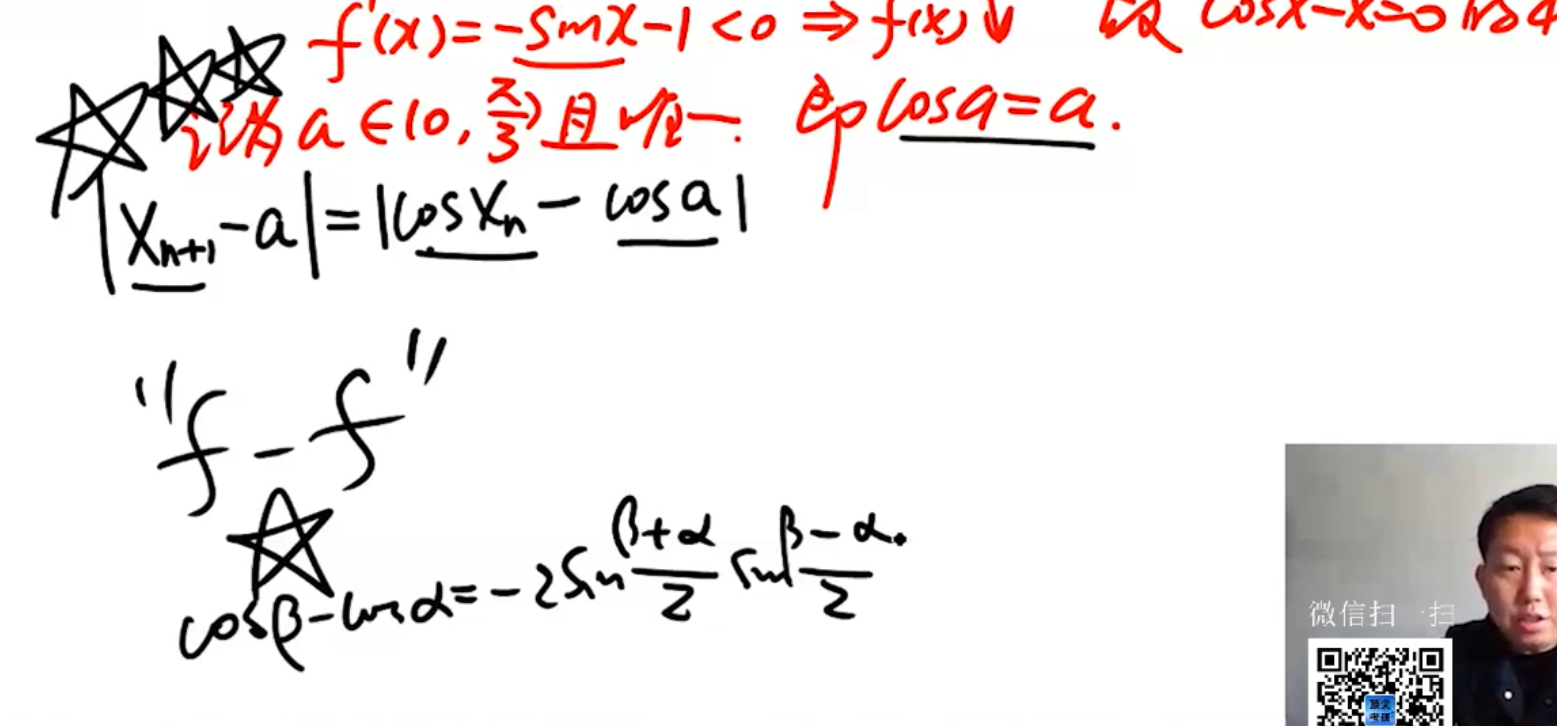 f'(x)=-sinx-1<0 ⇒ f(x)↓ 故 cosx-x=0
记为 a∈(0, π/3) 且唯一. 即 cosa=a.
|x_{n+1}-a|=|cosx_n-cosa|
"f-f"
cosβ-cosα=-2sin (β+α)/2 sin (β-α)/2.
微信扫一扫
顶尖
考研